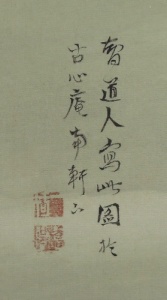 曾道人寫此圖於
古心庵南軒下